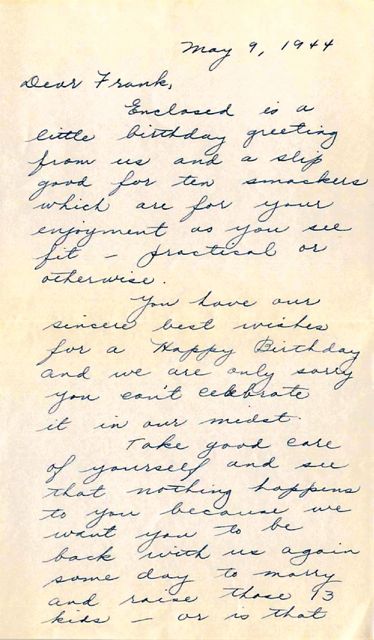 May 9, 1944
Dear Frank,
Enclosed is a
little birthday greeting
from us and a slip
good for ten smackers
which are for your
enjoyment as you see
fit – practical or
otherwise.
You have our
sincere best wishes
for a Happy Birthday
and we are only sorry
you can't celebrate
it in our midst.
Take good care
of yourself and see
that nothing happens
to you because we
want you to be
back with us again
some day to marry
and raise those 13
kids – or is that